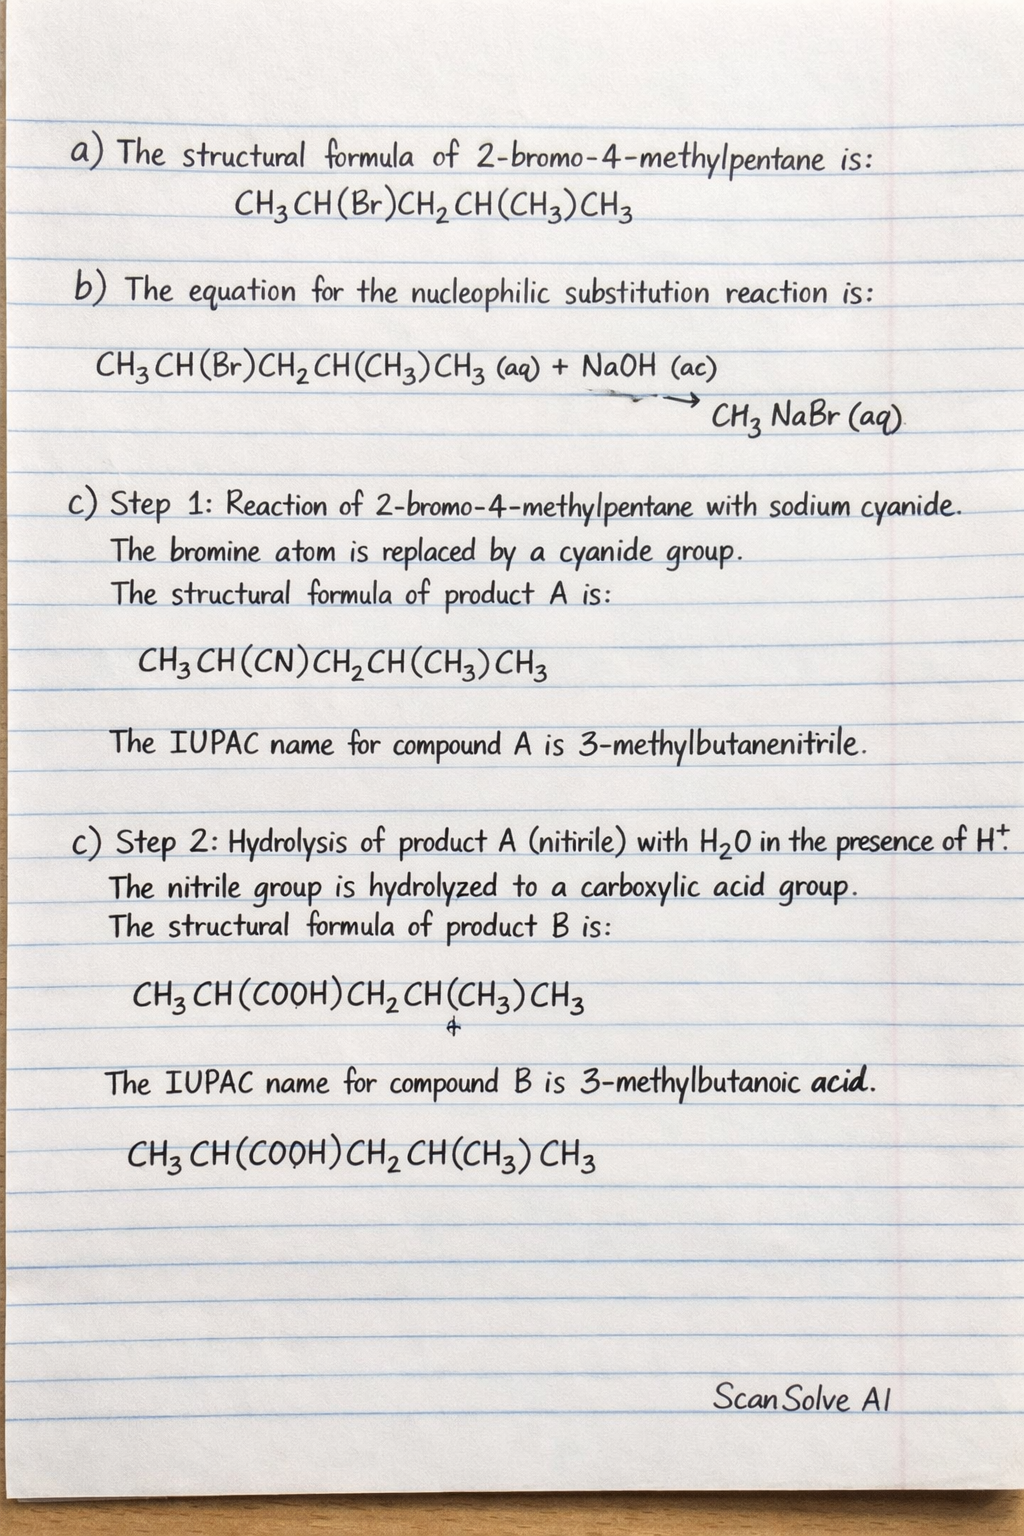 a) The structural formula of 2-bromo-4-methylpentane is:
CH₃CH(Br)CH₂CH(CH₃)CH₃
b) The equation for the nucleophilic substitution reaction is:
CH₃CH(Br)CH₂CH(CH₃)CH₃ (aq) + NaOH (ac)
→ CH₃ NaBr (aq)
c) Step 1: Reaction of 2-bromo-4-methylpentane with sodium cyanide.
The bromine atom is replaced by a cyanide group.
The structural formula of product A is:
CH₃CH(CN)CH₂CH(CH₃)CH₃
The IUPAC name for compound A is 3-methylbutanenitrile.
c) Step 2: Hydrolysis of product A (nitirile) with H₂O in the presence of H⁺.
The nitrile group is hydrolyzed to a carboxylic acid group.
The structural formula of product B is:
CH₃CH(COOH)CH₂CH(CH₃)CH₃
The IUPAC name for compound B is 3-methylbutanoic acid.
CH₃CH(COOH)CH₂CH(CH₃)CH₃
ScanSolve AI